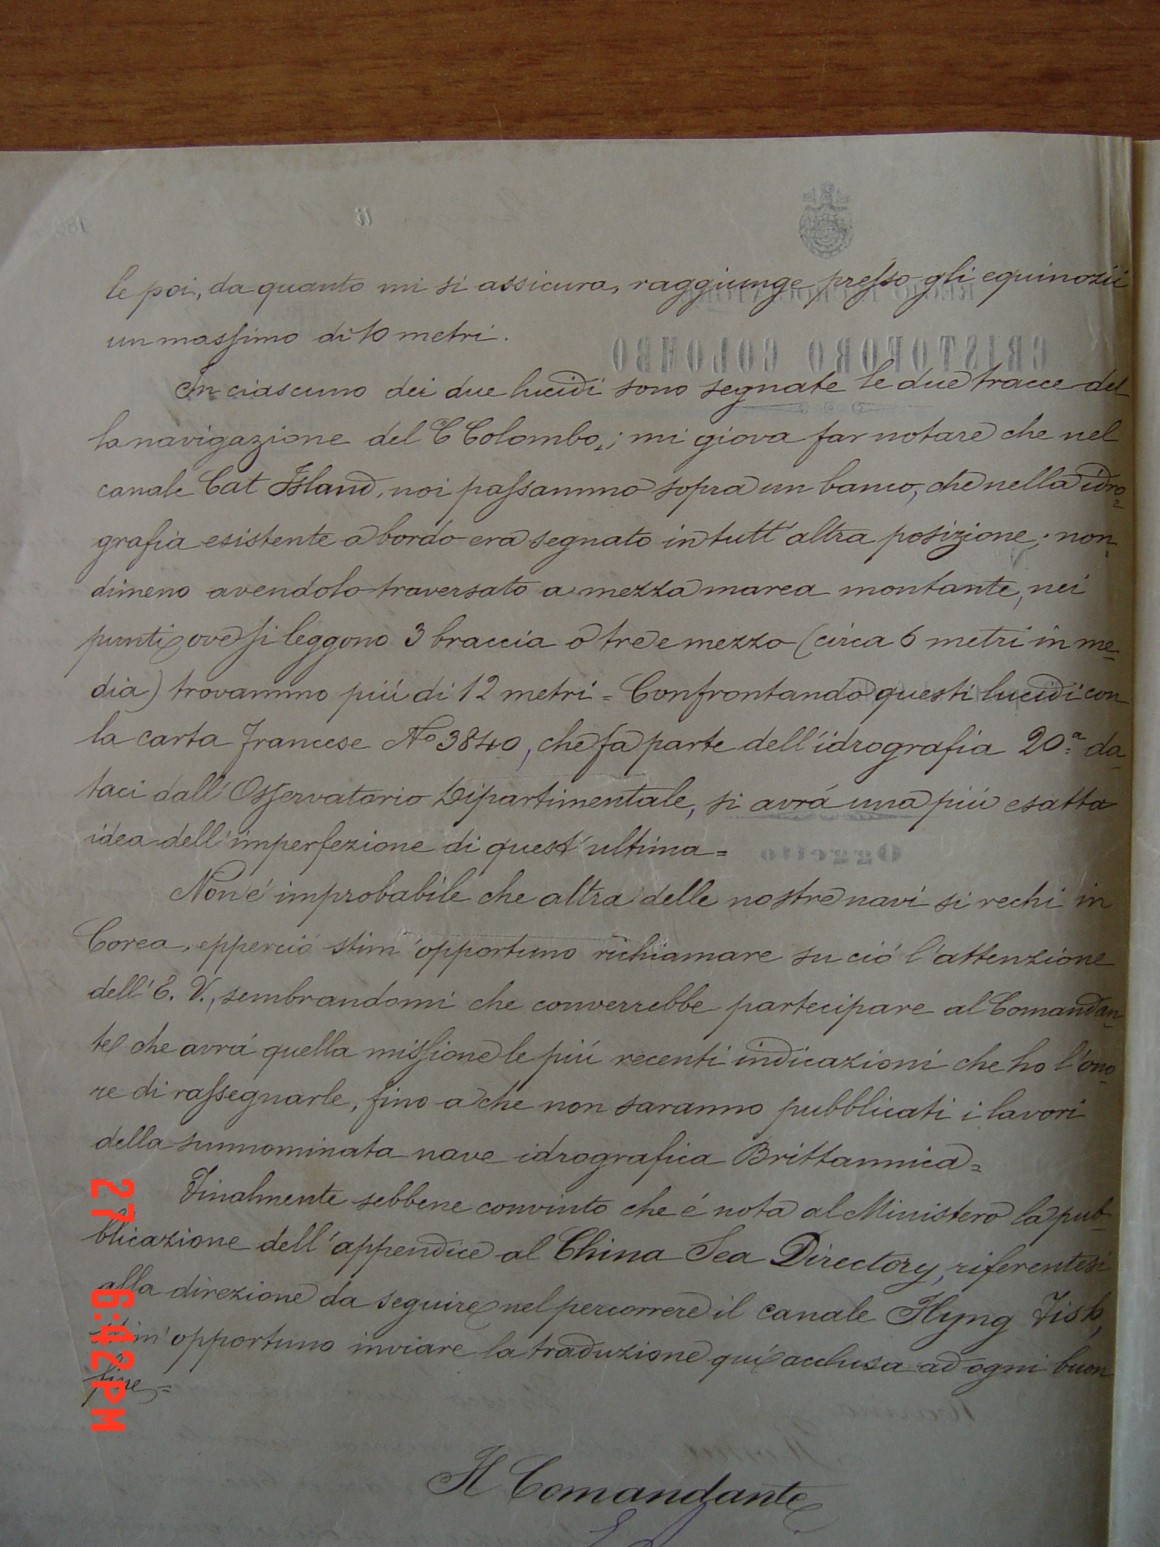 le poi, da quanto mi si assicura, raggiunge presso gli equinozii
un massimo di 10 metri.
In ciascuno dei due lucidi sono segnate le due tracce del
la navigazione del C Colombo,; mi giova far notare che nel
canale Cat Island, noi passammo sopra un banco, che nella idro=
grafia esistente a bordo era segnato in tutt'altra posizione; non=
dimeno avendolo traversato a mezza marea montante, nei
punti ove si leggono 3 braccia o tre e mezzo (circa 6 metri in me=
dia) trovammo più di 12 metri = Confrontando questi lucidi con
la carta francese No 3840, che fa parte dell'idrografia 20.a da=
taci dall'Osservatorio Dipartimentale, si avrá una piú esatta
idea dell'imperfezione di quest'ultima =
Non é improbabile che altra delle nostre navi si rechi in
Corea, epperció stim'opportuno richiamare su ció l'attenzione
dell'E. V., sembrandomi che converrebbe partecipare al Comandan=
te che avrá quella missione le piú recenti indicazioni che ho l'ono=
re di rassegnarle, fino a che non saranno pubblicati i lavori
della sunnominata nave idrografica Brittannica =
Finalmente sebbene convinto che é nota al Ministero la pub=
blicazione dell'appendice al China Sea Directory, riferentesi
alla direzione da seguire nel percorrere il canale Flyng Fish,
stim'opportuno inviare la traduzione qui acclusa ad ogni buon
fine =
Il Comandante
CRISTOFORO COLOMBO
Oggetto
27 6:42PM